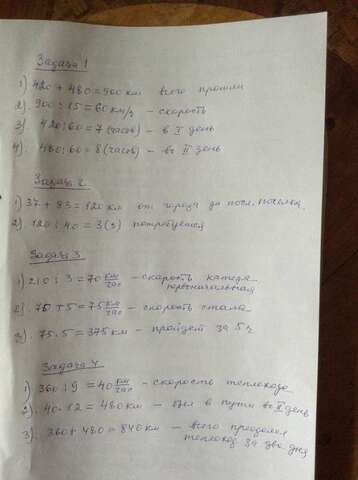 Задача 1
1) 420 + 480 = 900 км всего прошли
2). 900 : 15 = 60 км/ч – скорость
3) 420 : 60 = 7 (часов) – в I день
4). 480 : 60 = 8 (часов) – во II день
Задача 2
1) 37 + 83 = 120 км от города до посл. посёлка
2) 120 : 40 = 3 (ч) потребуется
Задача 3
1) 210 : 3 = 70 км/час – скорость катера первоначальная
2). 70 + 5 = 75 км/час – скорость стала
3). 75 · 5 = 375 км – пройдет за 5 ч
Задача 4
1) 360 : 9 = 40 км/час – скорость теплохода
2). 40 · 12 = 480 км – был в пути во II день
3). 360 + 480 = 840 км – всего преодолел
теплоход за два дня